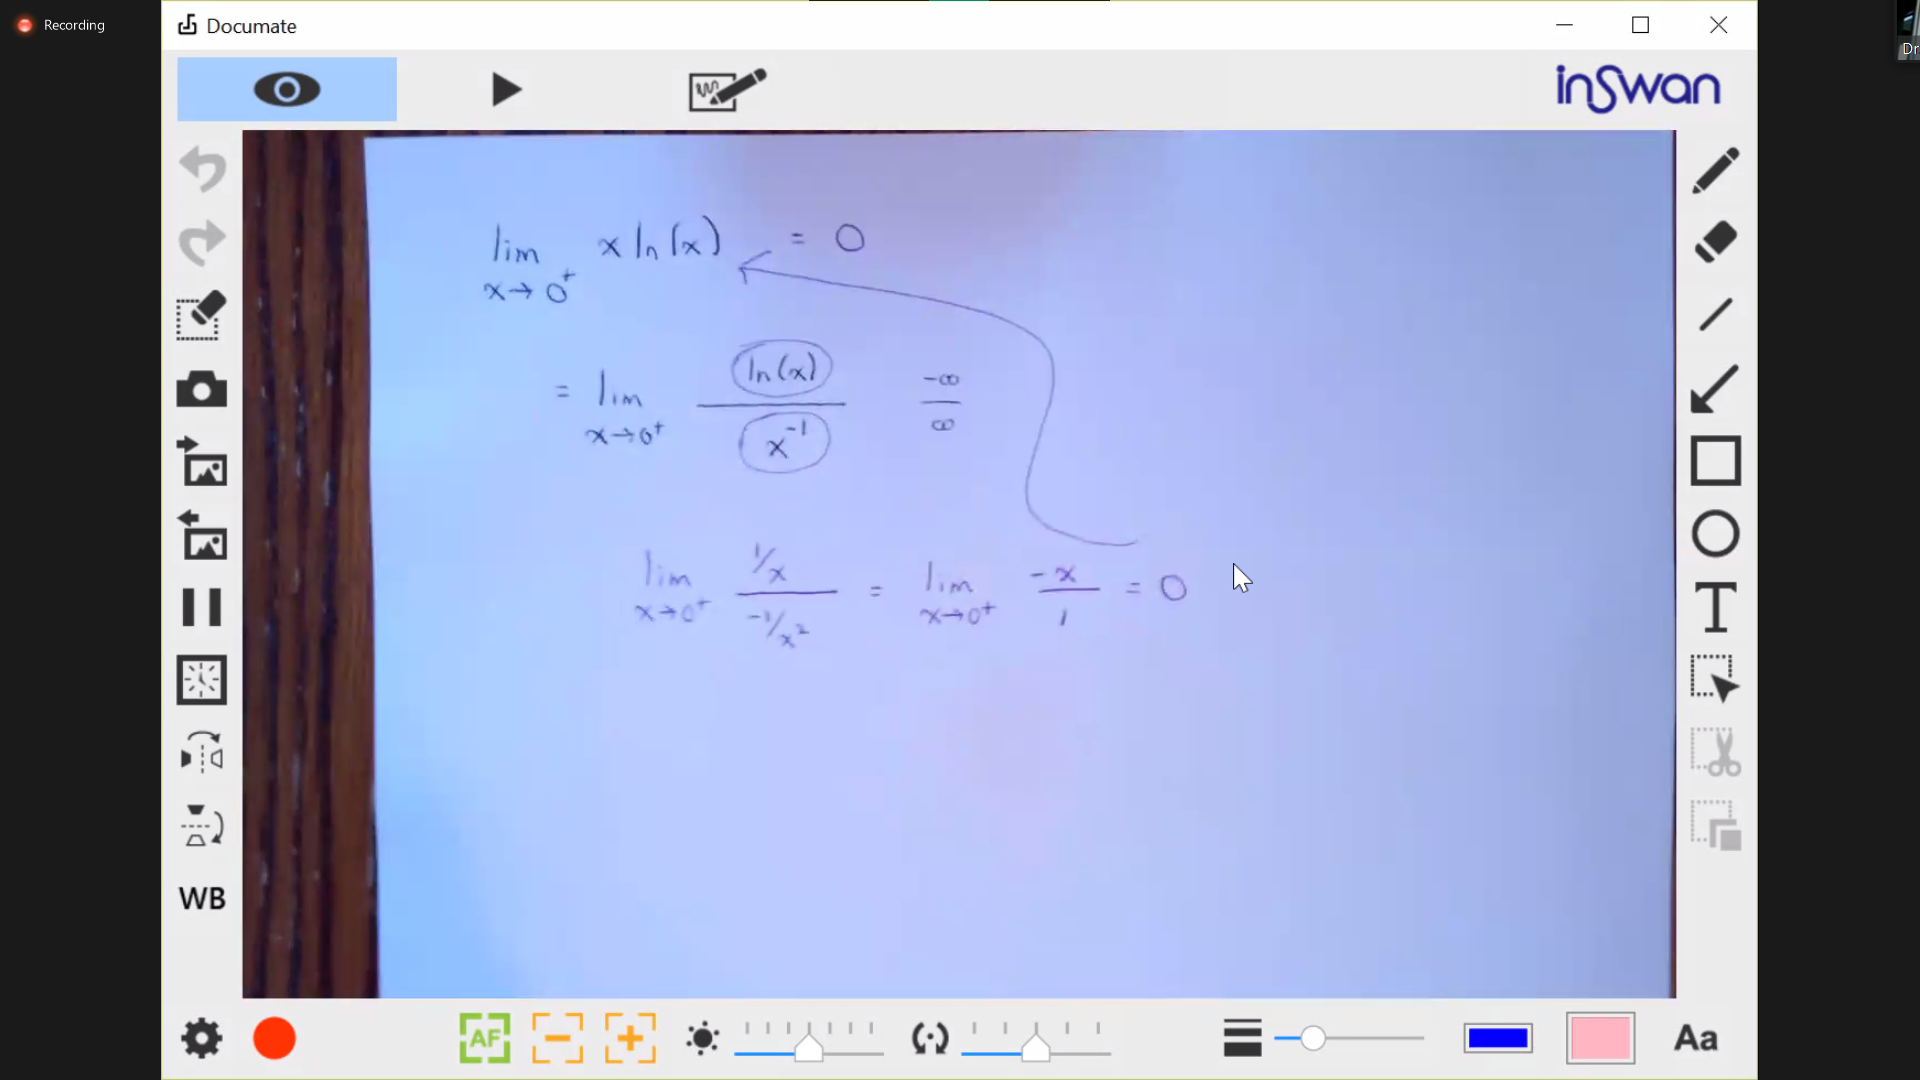 Recording
Documate
Dr
inSwan
lim x→0⁺ x ln(x) = 0
= lim x→0⁺ ln(x) / x⁻¹ -∞ / ∞
lim x→0⁺ 1/x / -1/x² = lim x→0⁺ -x / 1 = 0
WB
AF
T
Aa